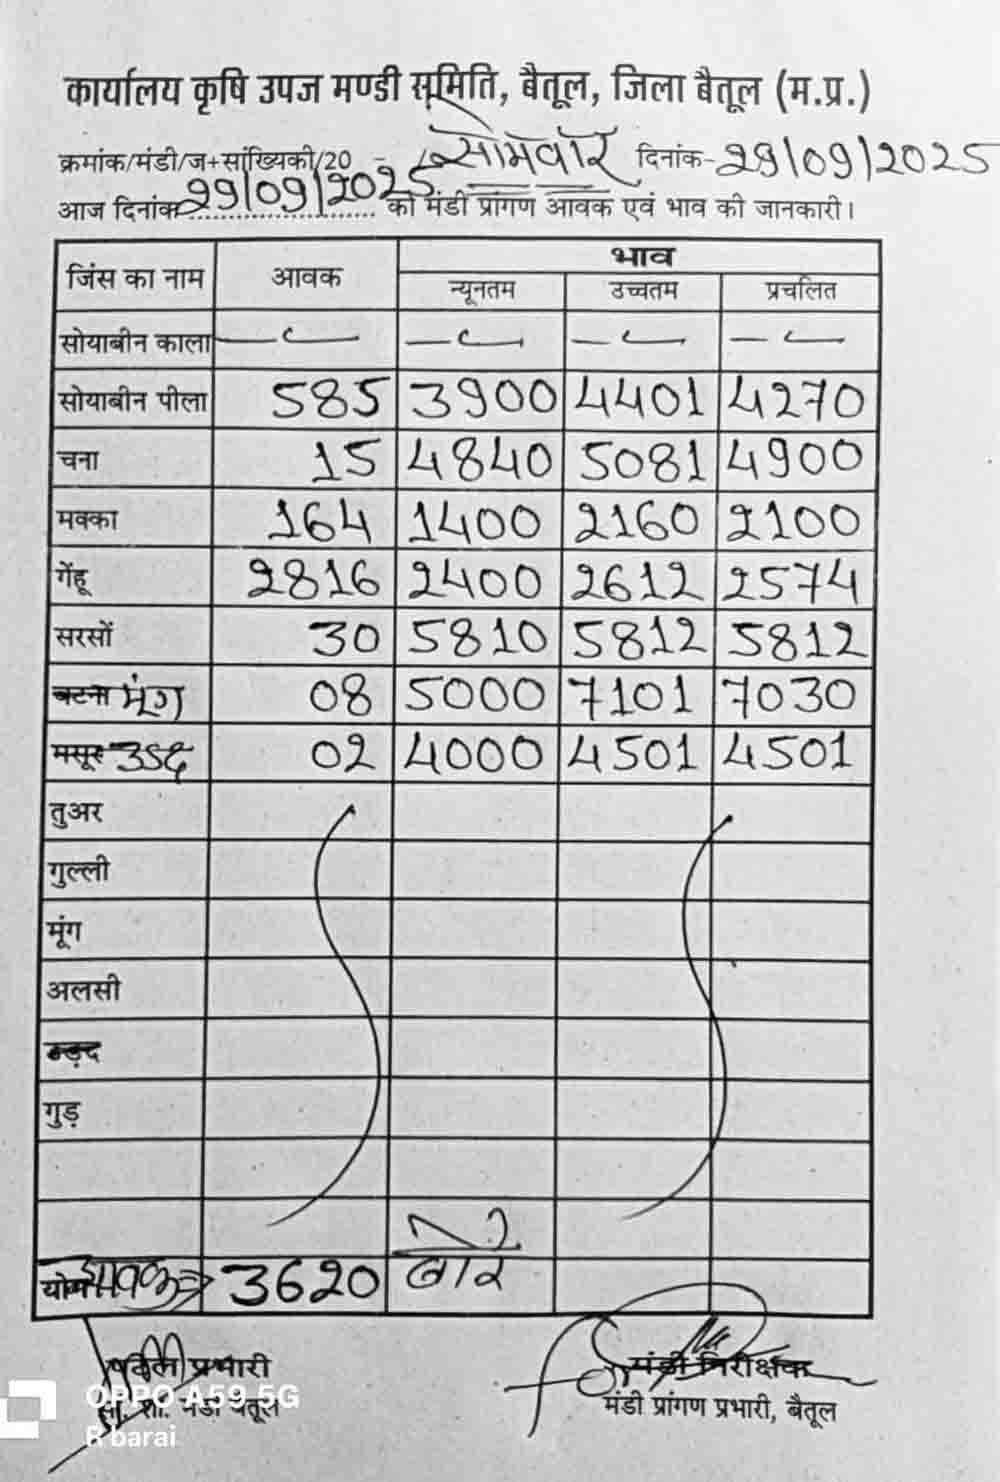 कार्यालय कृषि उपज मण्डी समिति, बैतूल, जिला बैतूल (म.प्र.)
क्रमांक/मंडी/ज+सांख्यिकी/20 - / सोमवार दिनांक- 29/09/2025
आज दिनांक 29/09/2025 को मंडी प्रांगण आवक एवं भाव की जानकारी।
जिंस का नाम आवक भाव
न्यूनतम उच्चतम प्रचलित
सोयाबीन काला — — — —
सोयाबीन पीला 585 3900 4401 4270
चना 15 4840 5081 4900
मक्का 164 1400 2160 2100
गेंहू 2816 2400 2612 2574
सरसों 30 5810 5812 5812
बटना मूंग 08 5000 7101 7030
मसूर उड़द 02 4000 4501 4501
तुअर
गुल्ली
मूंग
अलसी
उड़द
गुड़
योग आवक⇒ 3620 बोरे
प्रभारी मंडी निरीक्षक
मंडी बैतूल मंडी प्रांगण प्रभारी, बैतूल
OPPO A59 5G
R barai